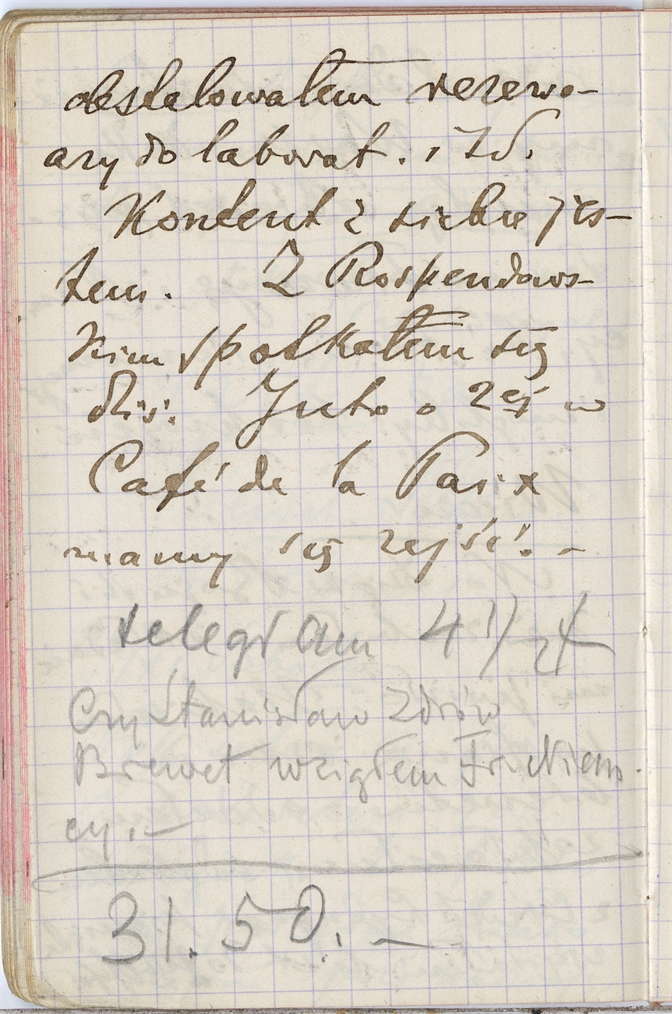 obstalowałem rezerwo-
ary do laborat. i Zd.
Kontent z siebie jes-
tem. Z Rospendows-
kim spotkałem się
dziś. Jutro o 2ej w
Café de la Paix
mamy się zejść! -
telegram 41 zł
Czy Stanisław Zdrów
Brewet wziąłem Fr. Niem.
cy. -
31.50. -